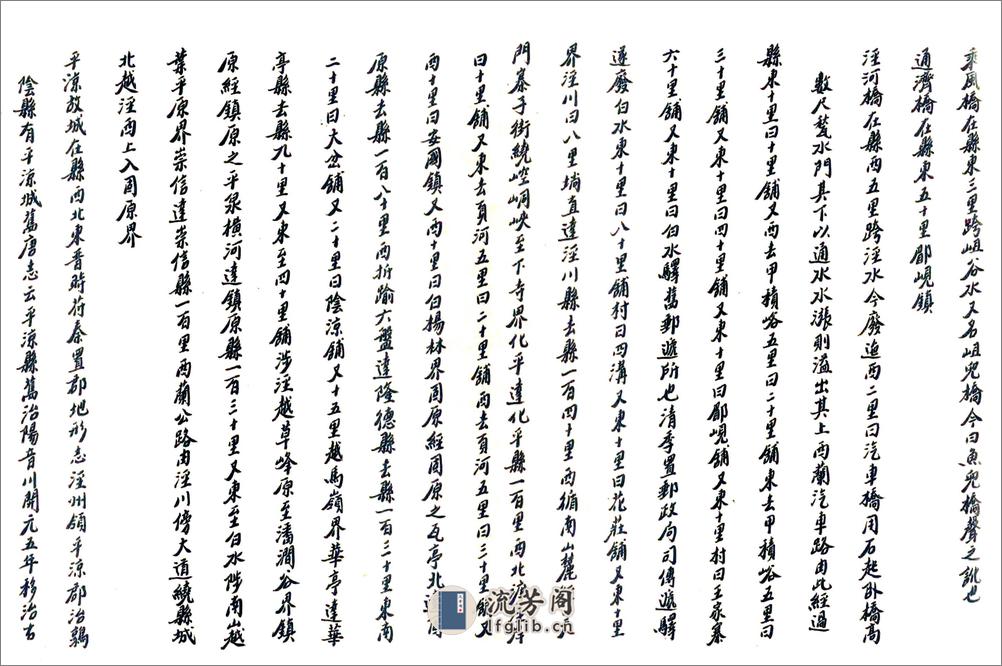 乘風橋在縣東三里跨岨谷水又名岨兒橋今曰魚兒橋聲之訛也
通濟橋在縣東五十里郿峴鎮
涇河橋在縣西五里跨涇水今廢迤西二里曰汽車橋用石起卧橋高
數尺甃水門其下以通水水漲則溢出其上西蘭汽車路由此經過
縣東十里曰十里舖又西去甲積峪五里曰二十里舖東去甲積峪五里曰
三十里舖又東十里曰四十里舖又東十里曰郿峴舖又東十里村曰王家寨
六十里舖又東十里曰白水驛舊郵遞所也清季置郵政局司傳遞驛
遂廢白水東十里曰八十里舖村曰四溝又東十里曰花莊舖又東十里
界涇川曰八里塆直達涇川縣去縣一百四十里西循南山麓
門寨子街繞崆峒峽至下寺界化平達化平縣一百里西北渡
曰十里舖又東去頁河五里曰二十里舖西去頁河五里曰三十里舖又
西十里曰安國鎮又西十里曰白楊林界固原經固原之瓦亭北達固
原縣去縣一百八十里西折踰六盤達隆德縣去縣一百三十里東南
二十里曰大岔舖又二十里曰陰涼舖又十五里越馬嶺界華亭達華
亭縣去縣九十里又東至四十里舖涉涇越草峰原至潘澗谷界鎮
原經鎮原之平泉橫河達鎮原縣一百三十里又東至白水陟南山越
葉平原界崇信達崇信縣一百里西蘭公路由涇川傍大道繞縣城
北越涇西上入固原界
平涼故城在縣西北東晉時苻秦置郡地形志涇州領平涼郡治鶉
陰縣有平涼城舊唐志云平涼縣舊治陽晉川開元五年移治古
流芳阁
lfglib.cn